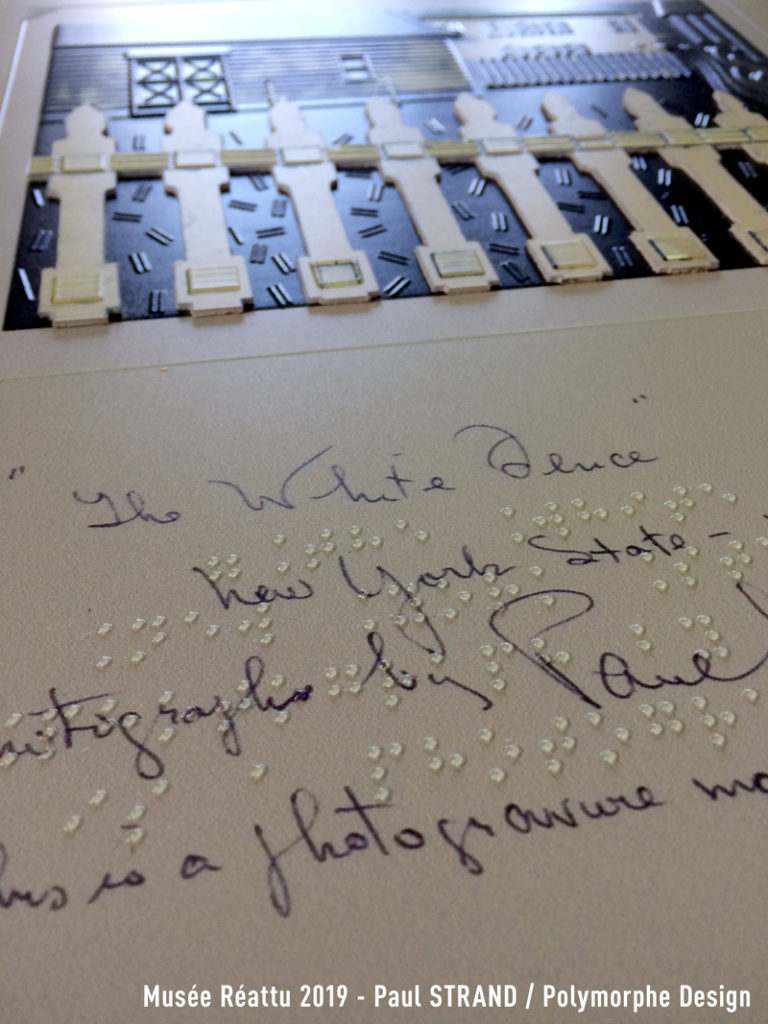 "The White Fence"
New York State -
Photography by Paul
this is a photogravure
Musée Réattu 2019 - Paul STRAND / Polymorphe Design